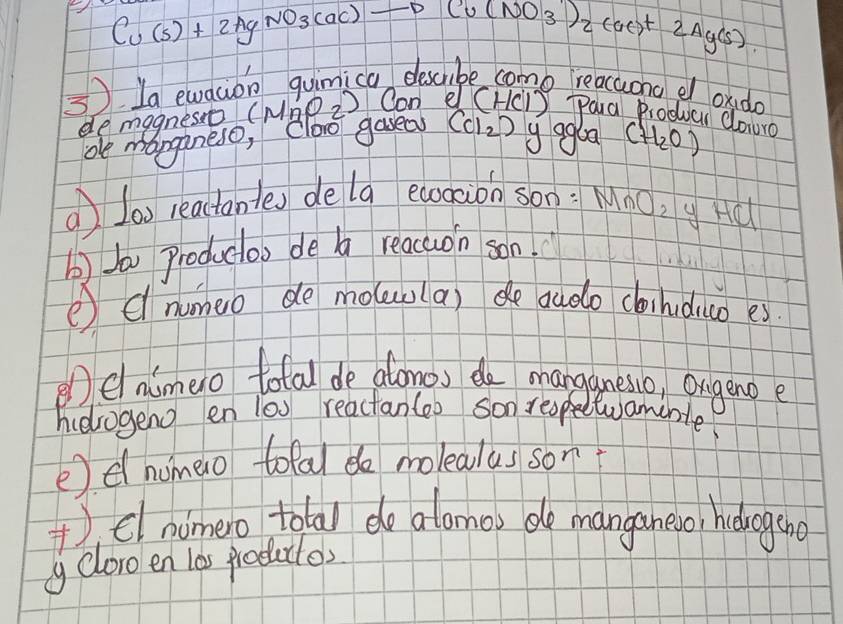 Cu (s) + 2Ag NO3 (ac) → Cu (NO3)2 (ac)+ 2Ag(s).
3). La ewación quimica describe como reacciona el oxido
de magneseo (MnO2) Con el (HCl) Para Producir cloruro
de manganeso, Cloro gaseas (Cl2) y agua (H2O)
a). Los reactantes de la ecuación son: MnO2 y HCl
b) Los Productos de la reacción son.
c) El número de moleculas de acido clorhidrico es.
d) El número total de atomos de manganesio, Oxigeno e
hidrogeno en los reactantes son respectivamente.
e). El número total de moleculas son:
f). El número total de atomos de manganeso, hidrogeno
y Cloro en los productos